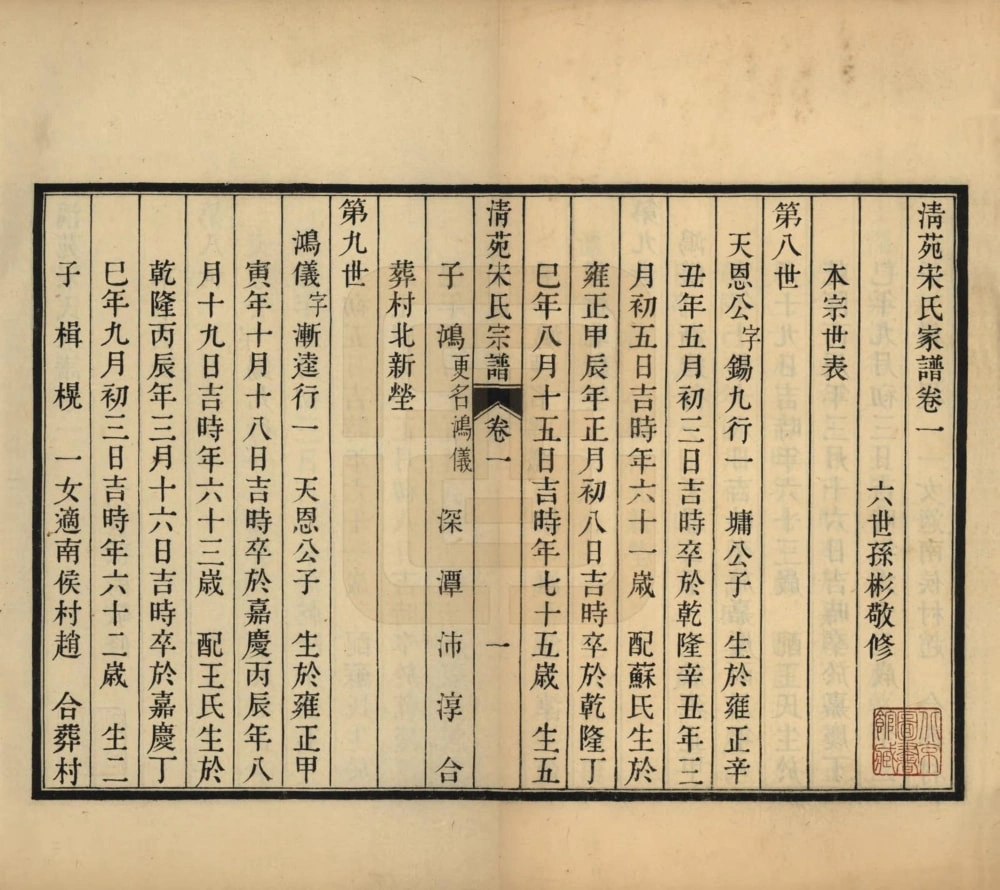 清苑宋氏家譜卷一
六世孫彬敬修
本宗世表
第八世
天恩公字錫九行一 墉公子 生於雍正辛
丑年五月初三日吉時卒於乾隆辛丑年三
月初五日吉時年六十一歲 配蘇氏生於
雍正甲辰年正月初八日吉時卒於乾隆丁
巳年八月十五日吉時年七十五歲 生五
清苑宋氏宗譜 卷一 一
子 鴻更名鴻儀 深 潭 沛 淳 合
葬村北新塋
第九世
鴻儀字漸逵行一 天恩公子 生於雍正甲
寅年十月十八日吉時卒於嘉慶丙辰年八
月十九日吉時年六十三歲 配王氏生於
乾隆丙辰年三月十六日吉時卒於嘉慶丁
巳年九月初三日吉時年六十二歲 生二
子 楫 榥 一女適南侯村趙 合葬村
北京圖書館藏